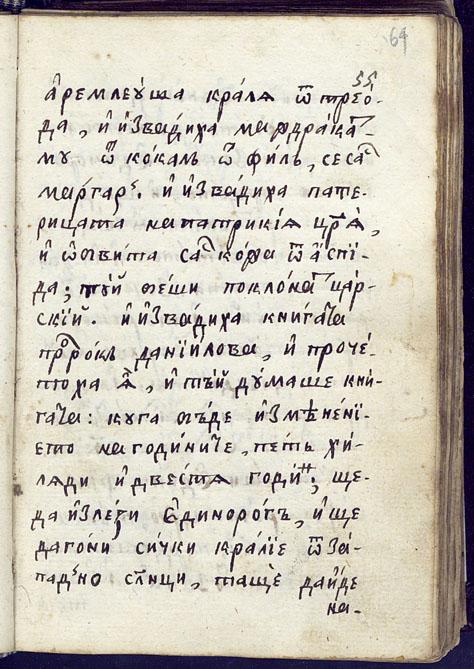 64
55
а҆ремлеꙋ́ша краля ѿ трео́-
да, и҆ и҆зва́диха маждрака҆
му ѿ ко́калъ ѿ фи́лъ, сеса
маргар. и҆ и҆зва́диха пате-
рицата на патрикїа цр҃ѧ,
и҆ ѡ҆вита са кожа ѿ а҆спі-
да; тꙋй беши поклона цар-
скїй. и҆ и҆зва́диха книгата
пр҇рокъ данїилова, и҆ проче́-
тоха ѧ҆, и҆ тъй ду́маше кни-
гата: куга бъ́де и҆змѣне́нї-
ето на годи́ните, петь хи́-
ляди и҆ двестя годин; ще-
да и҆злези є҆диноро́гъ, и҆ ще
дагони, си́чки кра́лїе ѿ за́-
падно слнци, та ще́ да и҆де
на-